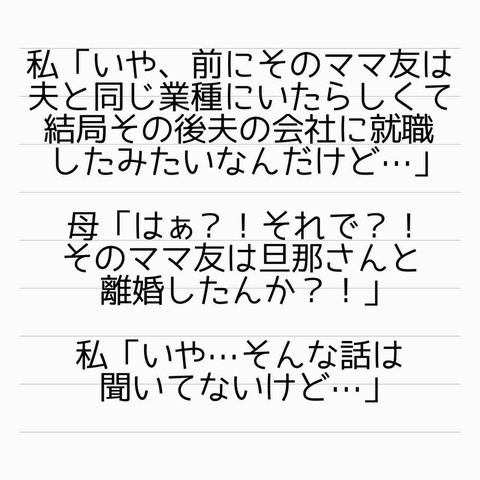 私「いや、前にそのママ友は
夫と同じ業種にいたらしくて
結局その後夫の会社に就職
したみたいなんだけど…」
母「はぁ？！それで？！
そのママ友は旦那さんと
離婚したんか？！」
私「いや…そんな話は
聞いてないけど…」